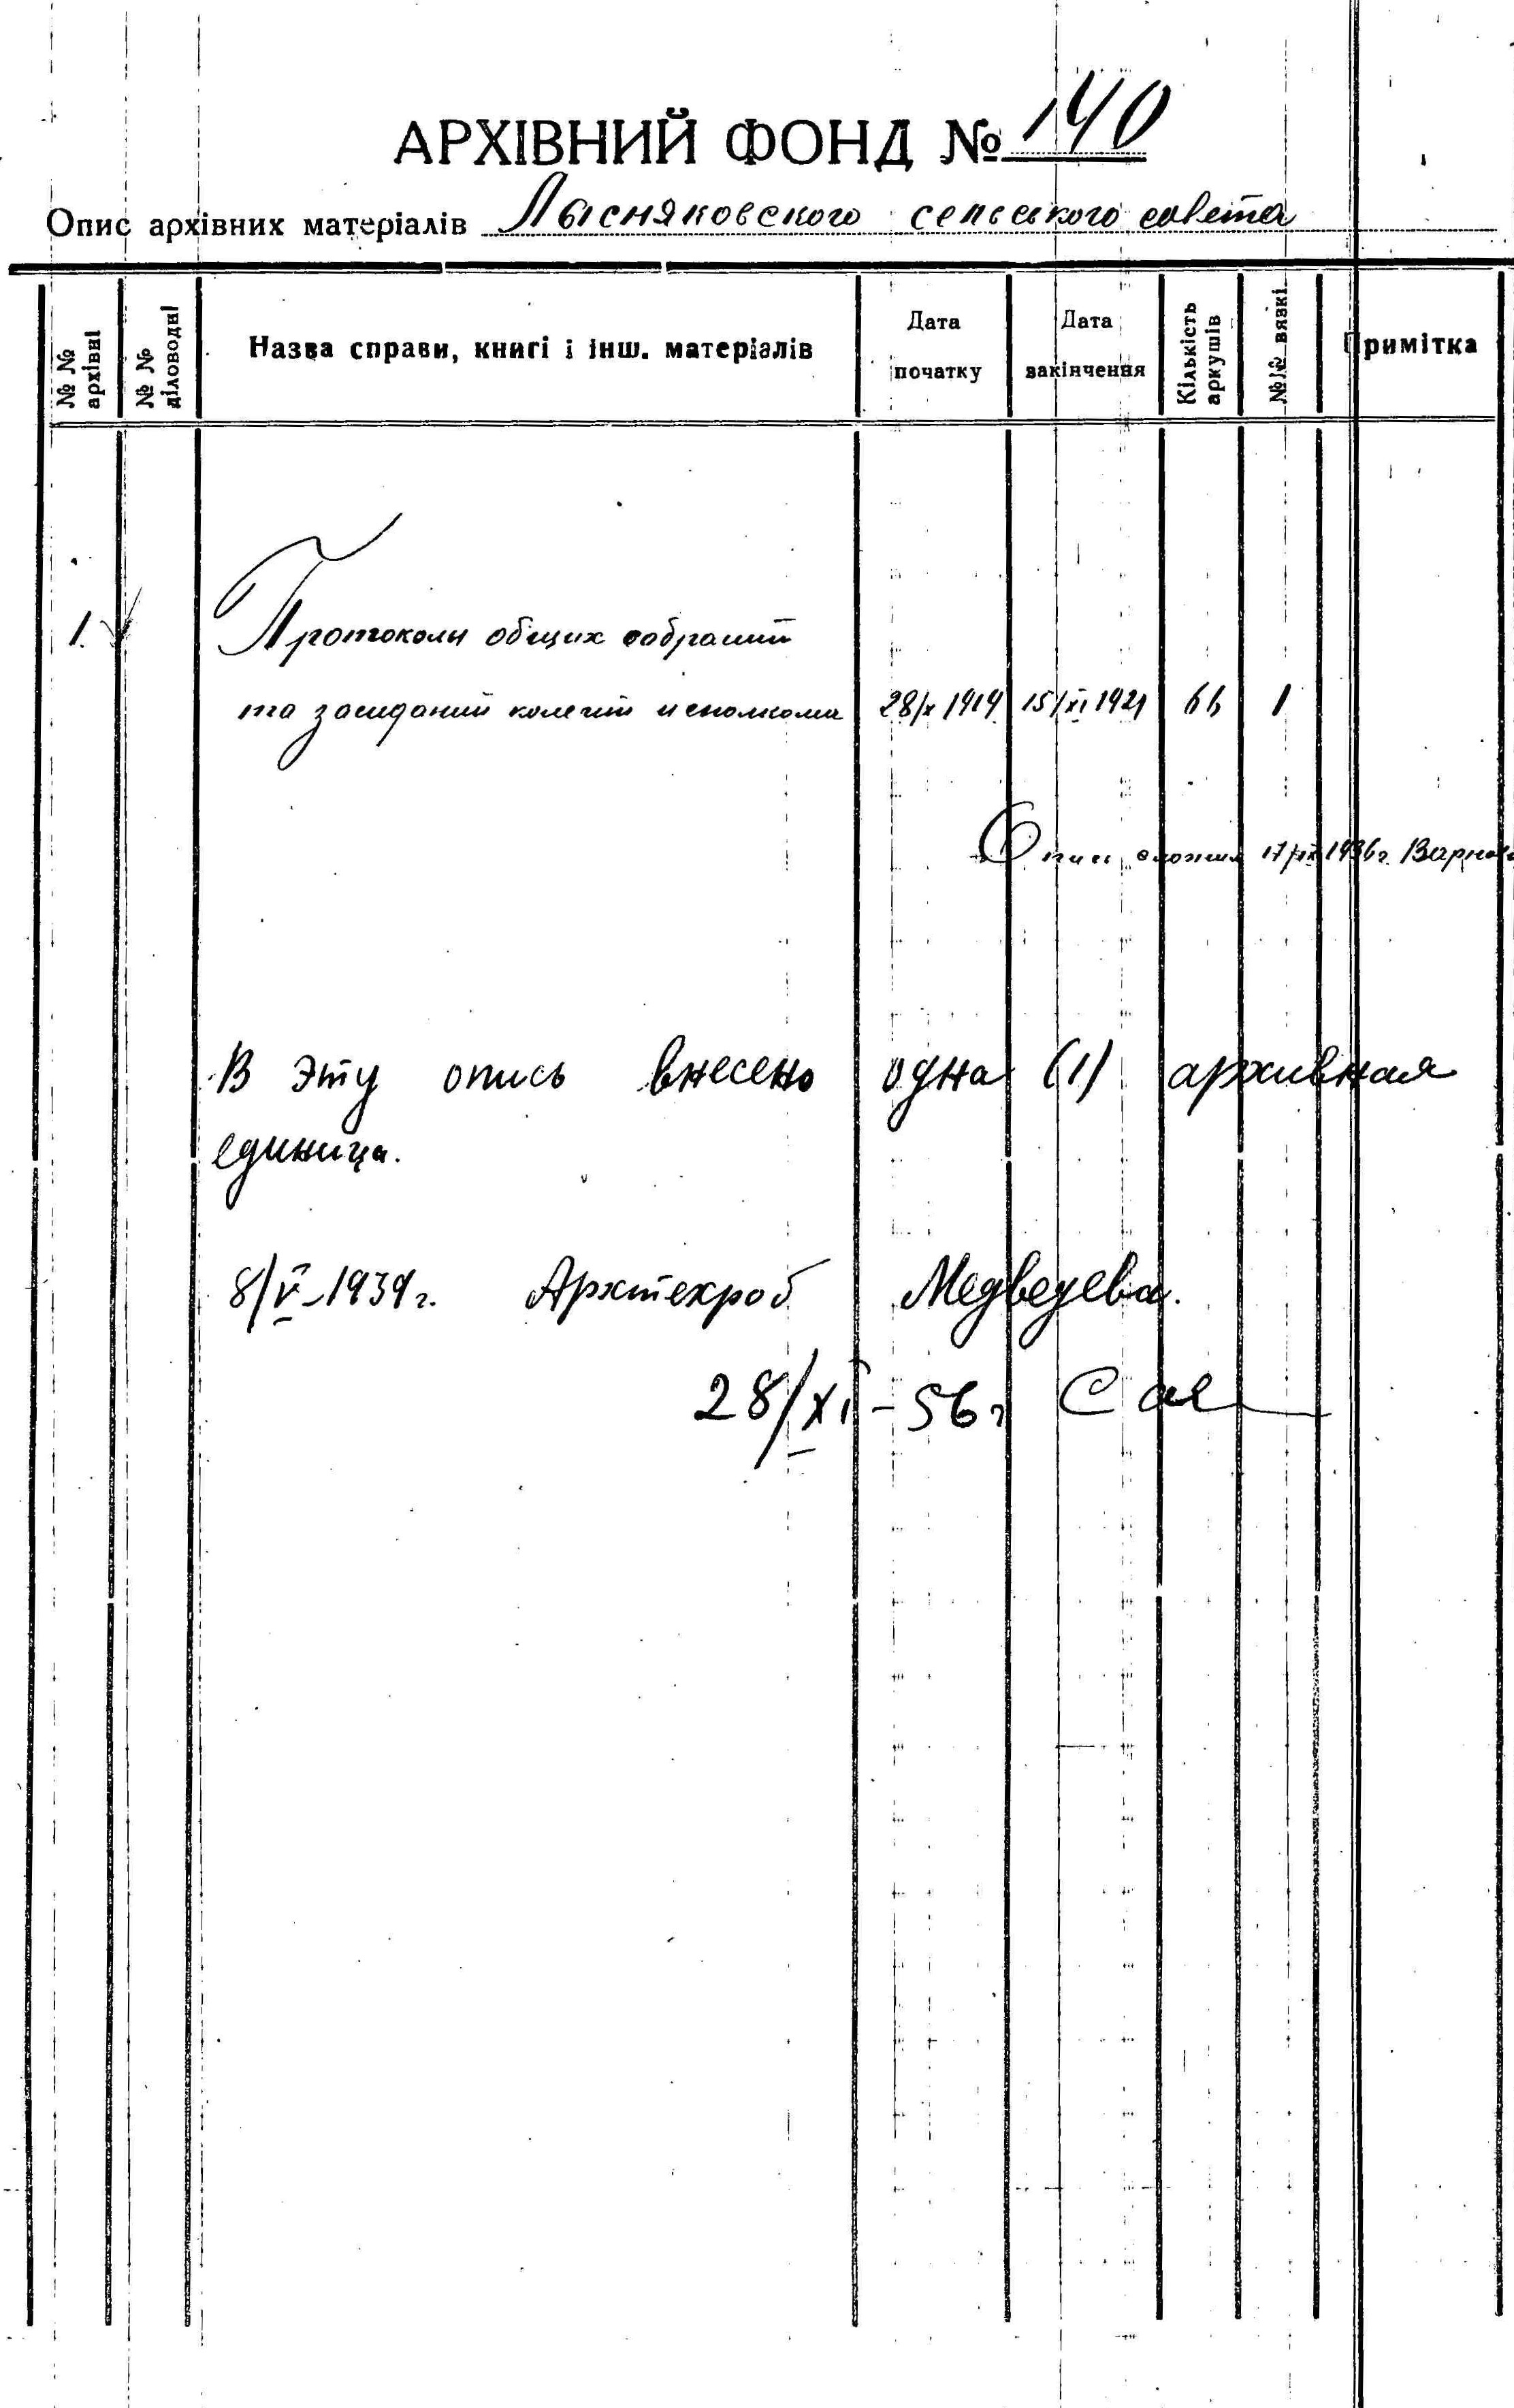 АРХІВНИЙ ФОНД № 140
Опис архівних матеріалів Лысняковского сельского совета
№ № архівні
№ № діловодні
Назва справи, книгі і інш. матеріалів
Дата початку
Дата закінчення
Кількість аркушів
№№ вязкі
Примітка
1. Протоколы общих собраний
та заседаний колегии исполкома 28/х 1919 15/XI 1921 66 1
Опись 1936г.
В эту опись внесено одна (1) архивная
единица.
8/V-1939г. Архтехроб Медведева.
28/XI-56г